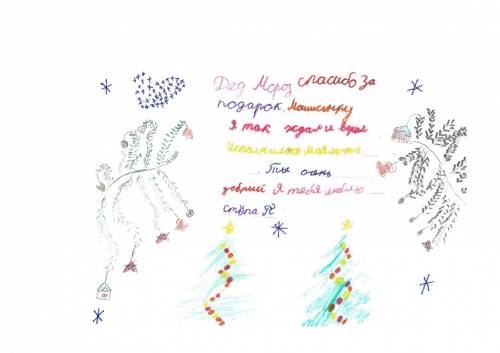 Дед Мороз спасибо за
подарок. Машиночку
Я так ждал и верил
исполнилась моя мечта
Ты очнь
добрый Я тебя люблю
Стёпа П